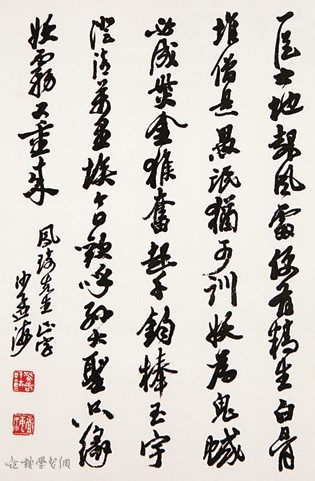 一從大地起風雷便有精生白骨
堆僧是愚氓猶可訓妖為鬼蜮
必成災金猴奮起千鈞棒玉宇
澄清萬里埃今日歡呼孫大聖只緣
妖霧又重來
鳳琦先生正字
沙孟海